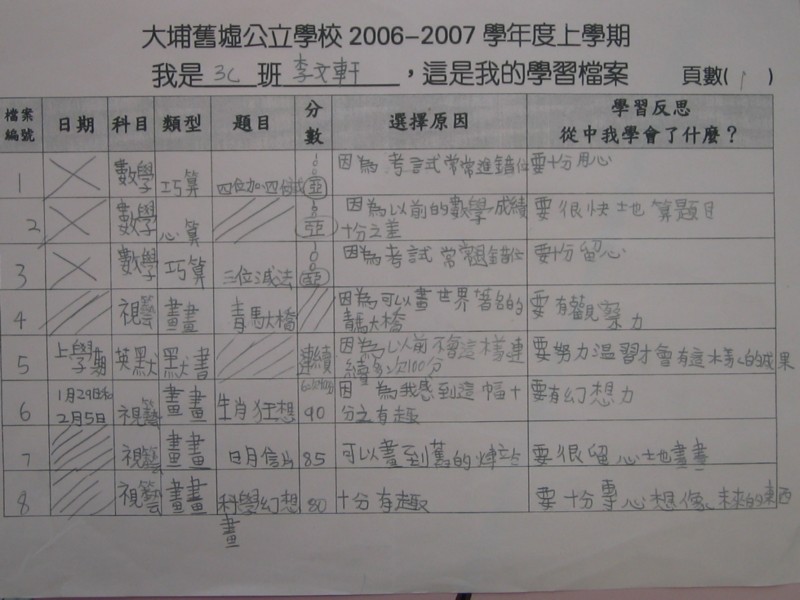 大埔舊墟公立學校 2006-2007 學年度上學期
我是 3C 班 李文軒 ，這是我的學習檔案 頁數( 1 )
檔案編號 日期 科目 類型 題目 分數 選擇原因 學習反思 從中我學會了什麼？
1 數學 巧算 四位加四位減 100 因為考試常常進錯位 要十分用心
2 數學 心算 因為以前的數學成績十分之差 要很快地算題目
3 數學 巧算 三位減法 100 因為考試常常錯位 要十分留心
4 視藝 畫畫 青馬大橋 因為可以畫世界著名的青馬大橋 要有觀察力
5 上學期 英默 默書 連續 因為以前不會這樣連續多次100分 要努力温習才會有這水的成果
6 1月29日和2月5日 視藝 畫畫 生肖狂想 90 因為我感到這幅十分之有趣 要有幻想力
7 視藝 畫畫 日月信片 85 可以畫到舊的 要很留心地畫畫
8 視藝 畫畫 科學幻想畫 80 十分有趣 要十分專心想像未來的東西